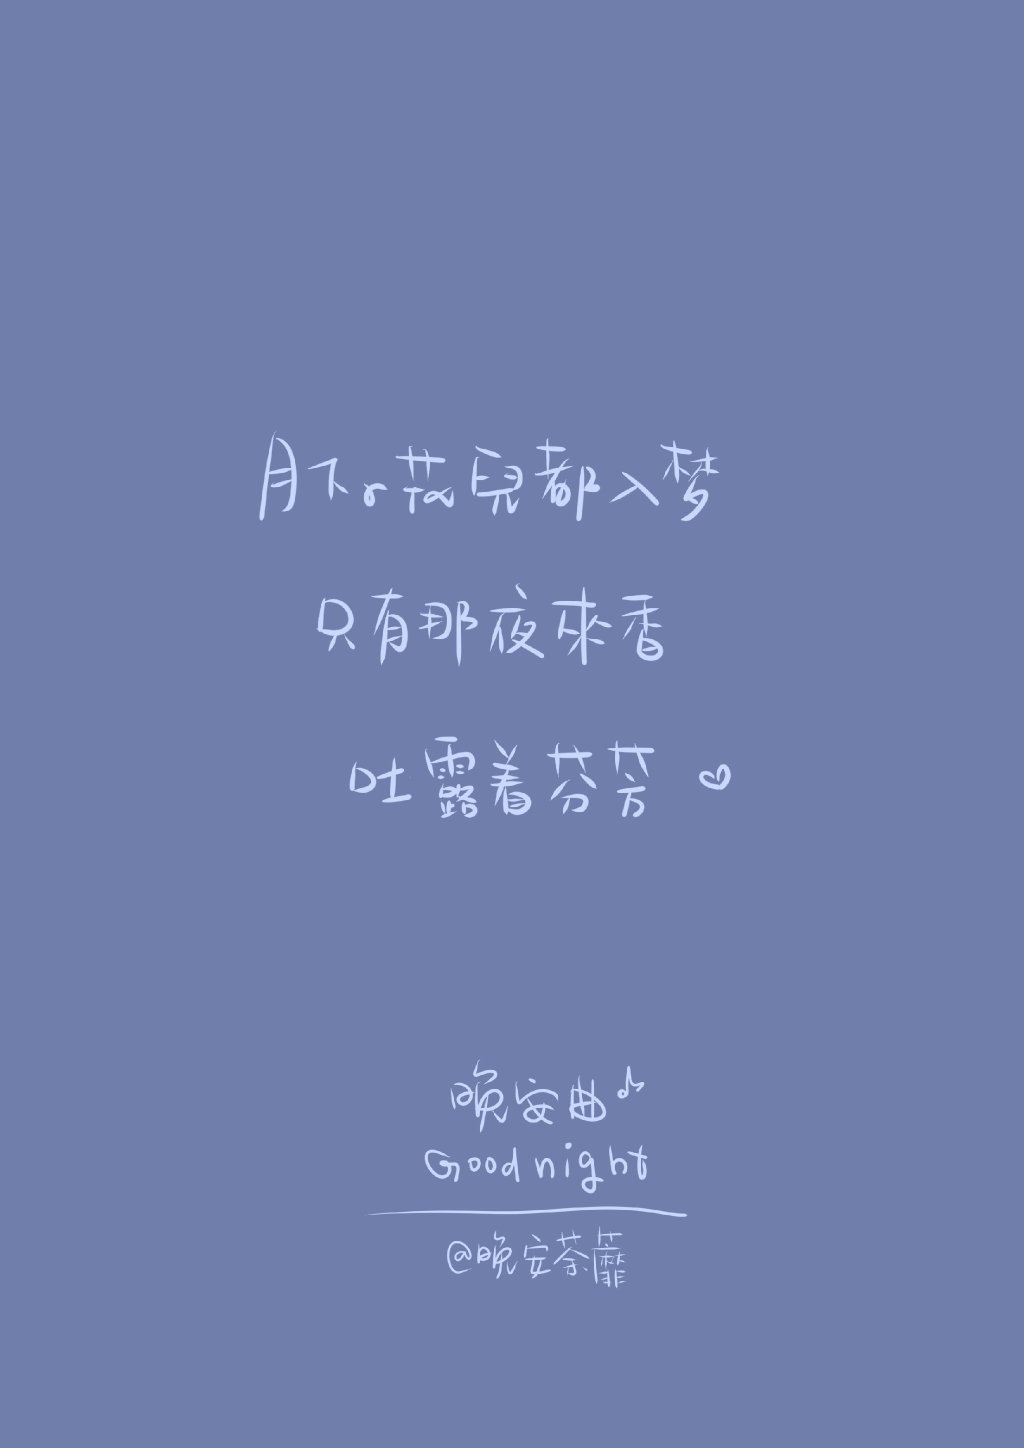 月下の花兒都入梦
只有那夜來香
吐露着芬芳
晚安曲
Good night
@晚安荼蘼